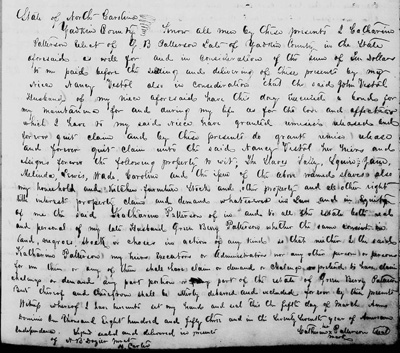 State of North Carolina
Yadkin County Know all men by these presents I Catharine
Patterson Relict of G B Patterson Late of Yadkin County in the State
aforesaid as well for and in consideration of the sum of ten dollars
to me paid before the sealing and delivering of these presents by my
niece Nancy Vestal also in consideration that the said John Vestal
Husband of my niece aforesaid have this day executed a bond for
my maintainance for and during my life as for the love and affection
which I have to my said niece have granted remissed released and
forever quit claim and by these presents do grant remise release
and forever quit claim unto the said Nancy Vestal her heirs and
assigns forever the following property to wit, Ten Slaves Sally, Squire, Jane,
Melinda, Lewis, Wade, Caroline and the of the above named slaves also
my household and Kitchen furniture Stock and other property and all other right
title interest property claim and demand whatsoever in Law and in Equity
of me the said Katharine Patterson of in and to all the estate both real
and personal of my late Husband Green Berry Patterson whether the same consist in
land, negroes stock or choses in action of any kind so that neither I the said
Katharine Patterson my heirs Executors or Administrators nor any other person or persons
for me or them or any of them shall have claim or demand or challenge or pretend to have claim
challenge or demand any part portion or part of the estate of Green Berry Patterson
But thereof and therefrom shall be utterly debarred and excluded forever by these presents
Witness whereof I have hereunto set my hand and seal this the fifth day of March Anno
Domini One Thousand Eight hundred and fifty three and in the Seventy Seventh year of American
Independence. Signed sealed and delivered in presents Catharine X Patterson Seal
of mark